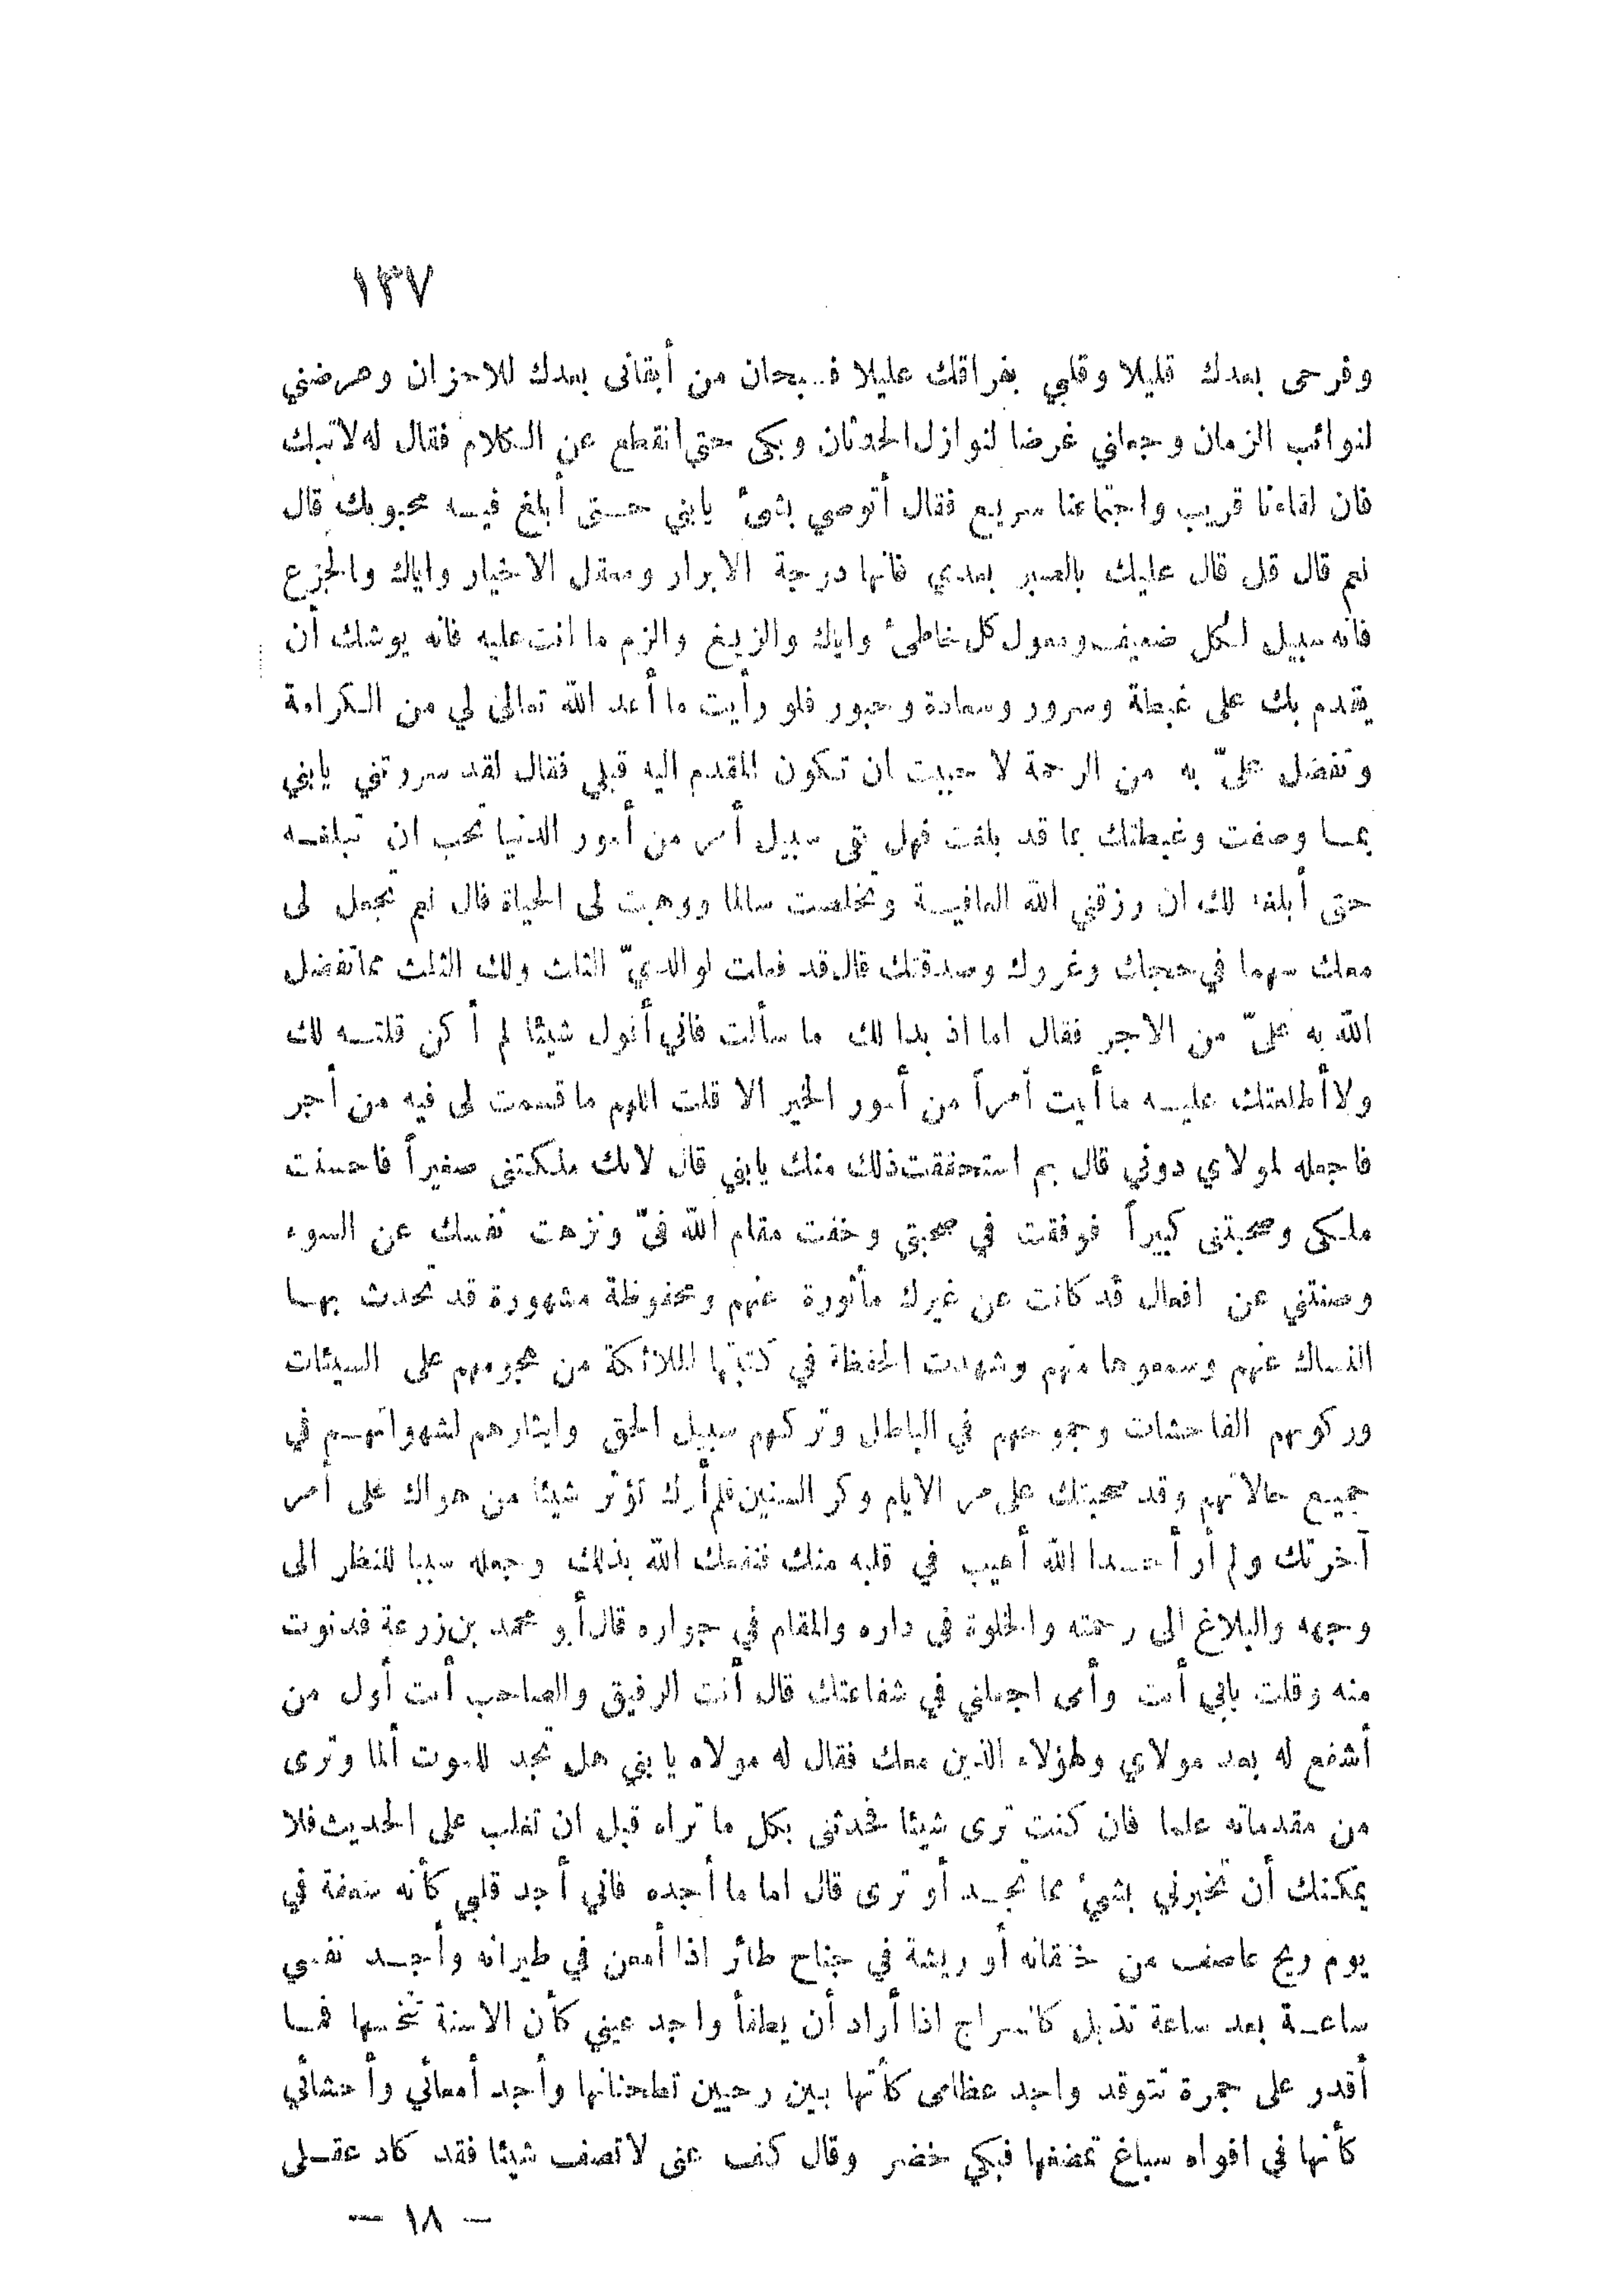 ١٣٧
وفرحى بعدك قليلا وقلبي بفراقك عليلا فسبحان من أبقانى بعدك للاحزان وعرضني
لنوائب الزمان وجعلني غرضا لنوازل الحدثان وبكى حتى انقطع عن الكلام فقال له لا تبك
فان لقاءنا قريب واجتماعنا سريع فقال أتوصي بشئ يابني حتى أبلغ فيه محبوبك قال
نعم قال قل قال عليك بالصبر بعدي فانها درجة الابرار ومعقل الاخيار واياك والجزع
فانه سبيل لكل ضعيف ومعول كل خاطئ واياك والزيغ والزم ما انت عليه فانه يوشك أن
يقدم بك على غبطة وسرور وسعادة وحبور فلو رأيت ما أعد الله تعالى لي من الكرامة
وتفضل عليّ به من الرحمة لا حببت ان تكون المقدم اليه قبلي فقال لقد سررتني يابني
بما وصفت وغبطتك بما قد بلغت فهل بقى سبيل أمر من أمور الدنيا تحب ان تبلغه
حتى أبلغه لك ان رزقني الله العافية وتخلصت سالما ووهبت لى الحياة قال نعم تجعل لى
معك سهما في حجك وغزوك وصدقتك قال قد فعلت لوالديّ الثلث ولك الثلث مما تفضل
الله به عليّ من الاجر فقال اما اذ بدا لك ما سألت فاني أقول شيئا لم أكن قلته لك
ولا أطلعتك عليه ما أتيت أمراً من أمور الخير الا قلت اللهم ما قسمت لى فيه من أجر
فاجعله لمولاي دوني قال بم استحققت ذلك منك يابني قال لانك ملكتنى صغيراً فاحسنت
ملكى وصحبتنى كبيراً فوفقت في صحبتي وخفت مقام الله فيّ ونزهت نفسك عن السوء
وصنتني عن افعال قد كانت عن غيرك مأثورة عنهم ومحفوظة مشهورة قد تحدث بها
النساك عنهم وسمعوها منهم وشهدت الحفظة في كتبها الملائكة من هجومهم على السيئات
وركوبهم الفاحشات وجموحهم في الباطل وتركهم سبيل الحق وايثارهم لشهواتهم في
جميع حالاتهم وقد صحبتك على مر الايام وكر السنين فلم أرك تؤثر شيئا من هواك على أمر
آخرتك ولم أر أحدا الله أهيب في قلبه منك فنفعك الله بذلك وجعله سببا للنظر الى
وجهه والبلاغ الى رحمته والخلوة في داره والمقام في جواره قال أبو محمد بن زرعة فدنوت
منه وقلت بابي أنت وأمى اجعلني في شفاعتك قال أنت الرفيق والصاحب أنت أول من
أشفع له بعد مولاي ولهؤلاء الذين معك فقال له مولاه يا بني هل تجد للموت ألما وترى
من مقدماته علما فان كنت ترى شيئا فحدثنى بكل ما تراه قبل ان تغلب على الحديث فلا
يمكنك أن تخبرني بشئ مما تجد أو ترى قال اما ما أجده فاني أجد قلبي كأنه سعفة في
يوم ريح عاصف من خفقانه أو ريشة في جناح طائر اذا أمعن في طيرانه وأجد نفسي
ساعة بعد ساعة تذبل كالسراج اذا أراد أن يطفأ واجد عيني كأن الاسنة تنخسها فما
أقدر على جمرة تتوقد واجد عظامى كأنها بين رحيين تطحنانها وأجد أمعائي وأحشائي
كأنها في افواه سباغ تمضغها فبكي خضر وقال كف عنى لا تصف شيئا فقد كاد عقلى
— ١٨ —